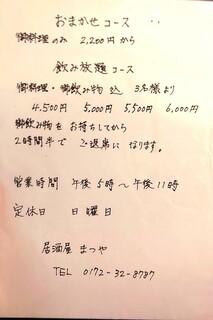 おまかせコース
御料理のみ 2,200円から
飲み放題コース
御料理・御飲み物 込 3名様より
4.500円 5,000円 5,500円 6,000円
御飲み物を お持ちしてから
2時間半で ご退席になります。
営業時間 午後5時〜午後11時
定休日 日曜日
居酒屋 まつや
TEL 0172-32-8787